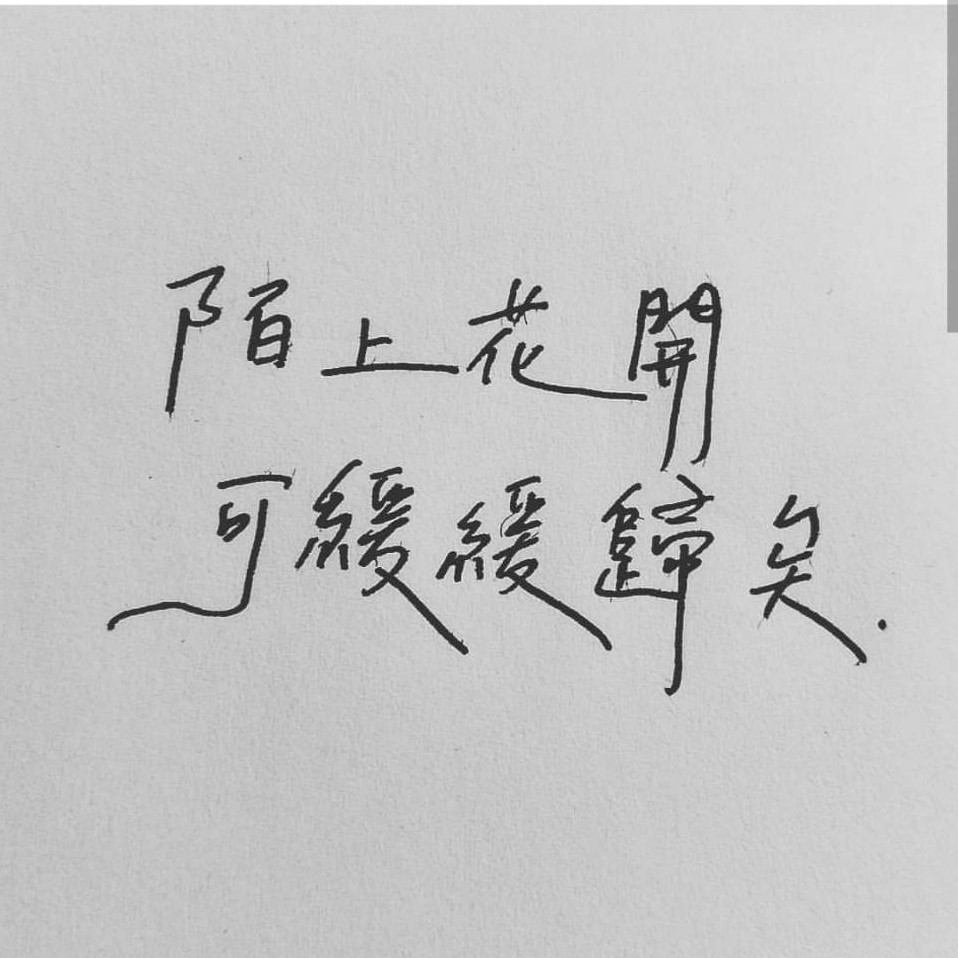 陌上花開
可緩緩歸矣.